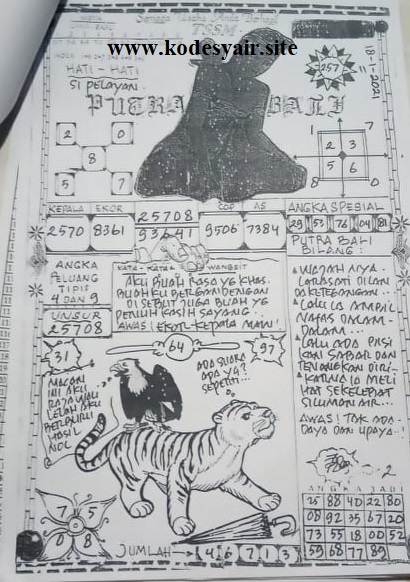 Semoga Usaha Anda Berhasil
TSSM
www.kodesyair.site
18-1-2021
257
11
HATI-HATI
SI PELAYAN
PUTRA BALI
2 0
8
5 7
1 7
2 3
5 6
8 0
KEPALA EKOR
2570 8361
25708
93641
COP AS
9506 7384
ANGKA SPESIAL
29 53 76 04 81
PUTRA BALI
BILANG:
ANGKA
PELUANG
TIPIS
4 DAN 9
UNSUR
25708
KATA-KATA WANGSIT
AKU BUAH RASA YG KHAS.
BUAHKU BERGANDENGAN
DI SEBUT JUGA BUAH YG
PENUH KASIH SAYANG.
AWAS! EKOR-KEPALA MAIN!
WAJAH AIYA
LARASATI DILAN
DA KETEGANGAN...
LALU IA AMBIL
NAFAS DALAM-
DALAM...
LALU ADA PASI
KAN SABAR DAN
TENANGKAN DIRI-
KARNA IA MELI
HAT SEKELEBAT
SILUMAN AIR...
AWAS! TAK ADA
DAYA DAN UPAYA..!
31
64
97
MACAN
INI AKU
RAJANYA
LELAH AKU
BERBURU
HASIL
NOL
ADA SUARA
APA YA?
SEPERTI...
7 5
0 8
JUMLAH
4 6 7 1 3
ANGKA JADI
25 88 40 22 80
08 92 35 67 20
73 55 18 00 52
59 68 77 89